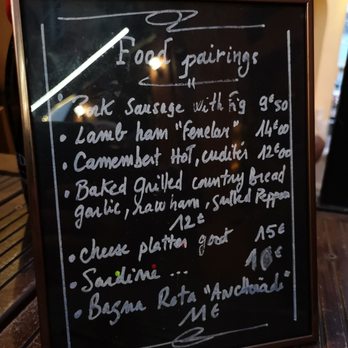 Food pairings
• Pork Sausage with Fig 9€50
• Lamb ham "Fenelar" 14€00
• Camembert Hot, crudités 12€00
• Baked Grilled country bread
garlic, raw ham, Salted Peppers
12€
• cheese platter goat 15€
• Sardine ... 10€
• Bagna Rota "Anchoiade"
11€